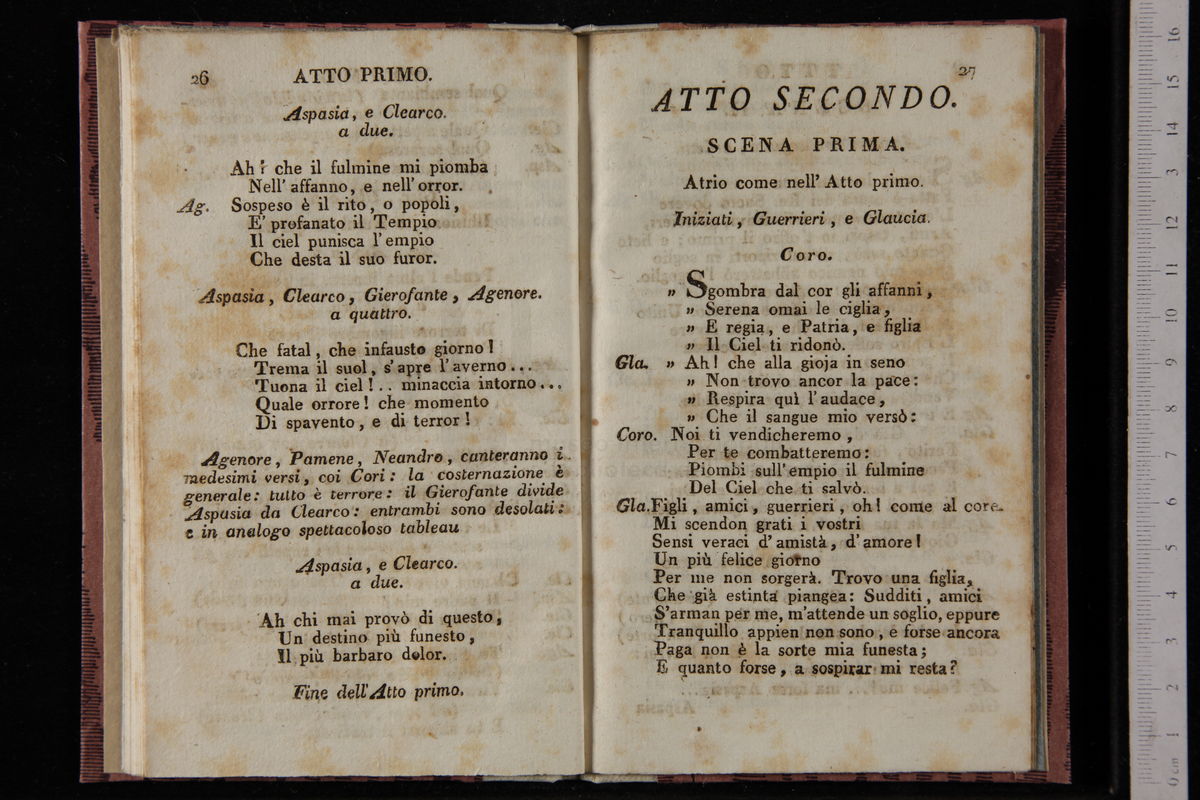 26 ATTO PRIMO.
Aspasia, e Clearco.
a due.
Ah! che il fulmine mi piomba
Nell' affanno, e nell' orror.
Ag. Sospeso è il rito, o popoli,
E' profanato il Tempio
Il ciel punisca l'empio
Che desta il suo furor.
Aspasia, Clearco, Gierofante, Agenore.
a quattro.
Che fatal, che infausto giorno!
Trema il suol, s'apre l'averno...
Tuona il ciel!.. minaccia intorno...
Quale orrore! che momento
Di spavento, e di terror!
Agenore, Pamene, Neandro, canteranno i
medesimi versi, coi Cori: la costernazione è
generale: tutto è terrore: il Gierofante divide
Aspasia da Clearco: entrambi sono desolati:
e in analogo spettacoloso tableau
Aspasia, e Clearco.
a due.
Ah chi mai provò di questo,
Un destino più funesto,
Il più barbaro dolor.
Fine dell'Atto primo.
27
ATTO SECONDO.
SCENA PRIMA.
Atrio come nell' Atto primo.
Iniziati, Guerrieri, e Glaucia.
Coro.
" Sgombra dal cor gli affanni,
" Serena omai le ciglia,
" E regia, e Patria, e figlia
" Il Ciel ti ridonò.
Gla. " Ah! che alla gioja in seno
" Non trovo ancor la pace:
" Respira quì l'audace,
" Che il sangue mio versò:
Coro. Noi ti vendicheremo,
Per te combatteremo:
Piombi sull'empio il fulmine
Del Ciel che ti salvò.
Gla. Figli, amici, guerrieri, oh! come al core
Mi scendon grati i vostri
Sensi veraci d'amistà, d'amore!
Un più felice giorno
Per me non sorgerà. Trovo una figlia,
Che già estinta piangea: Sudditi, amici
S'arman per me, m'attende un soglio, eppure
Tranquillo appien non sono, e forse ancora
Paga non è la sorte mia funesta;
E quanto forse, a sospirar mi resta?
0 cm 1 2 3 4 5 6 7 8 9 10 11 12 13 14 15 16